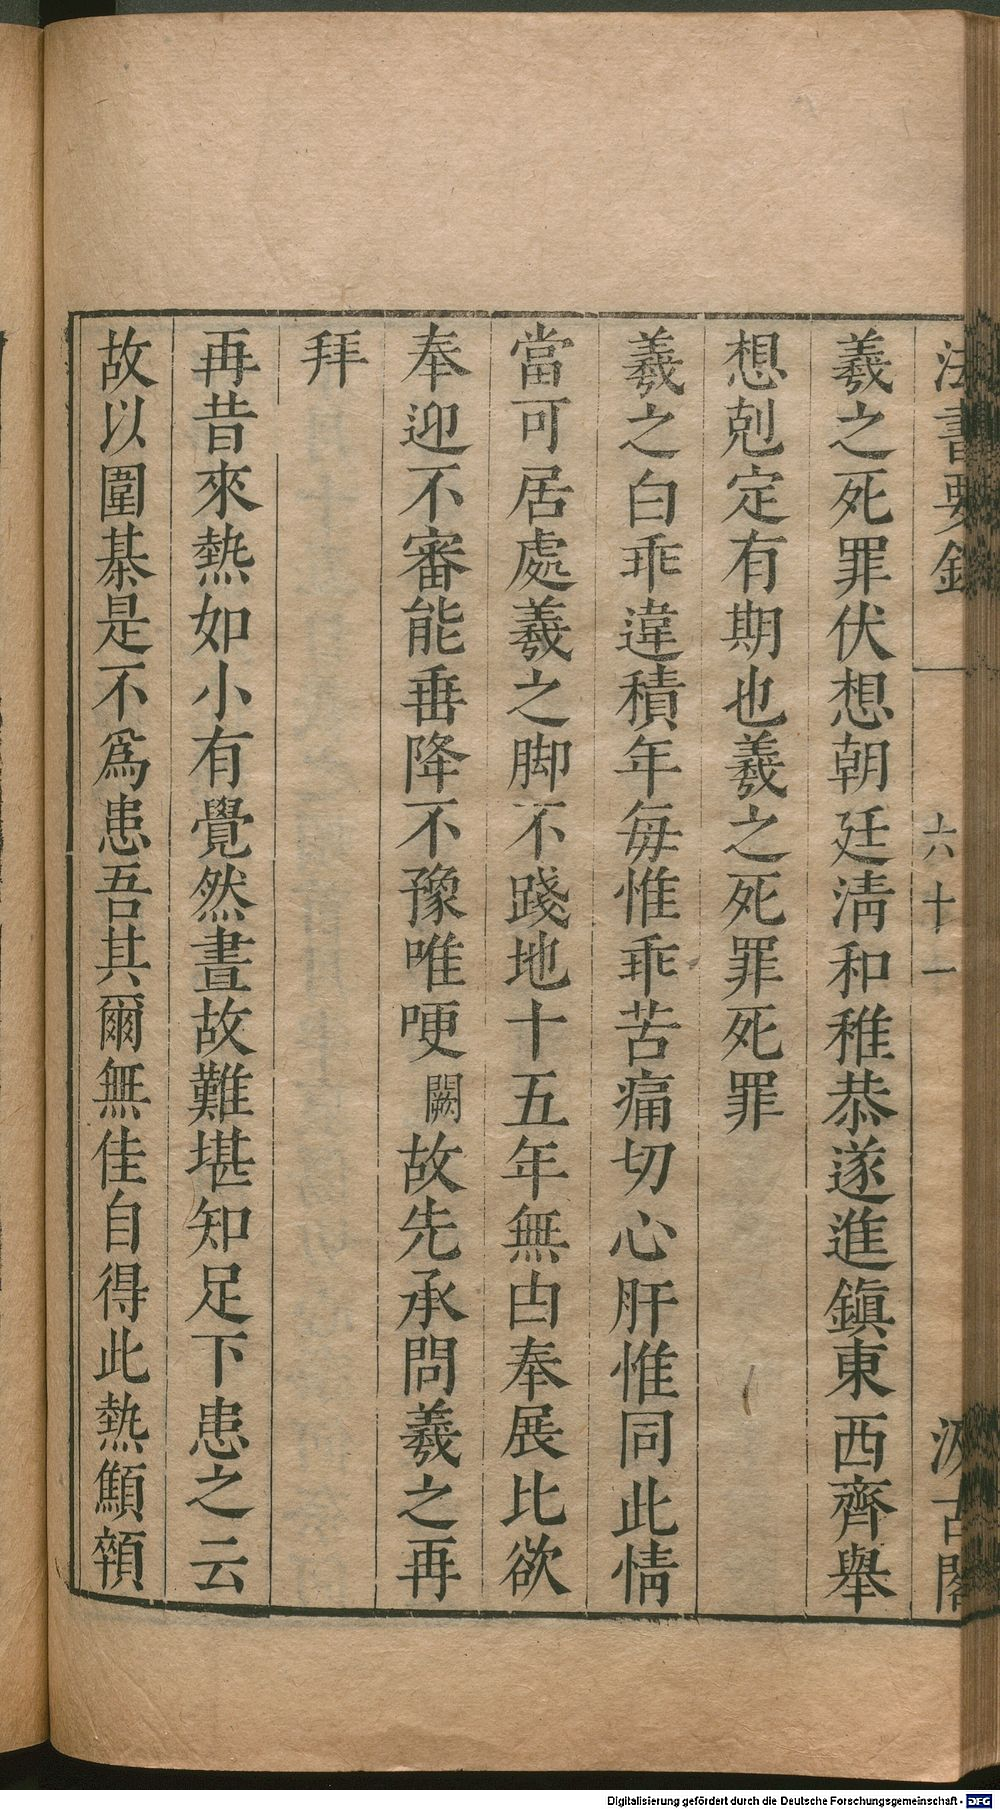 法書要錄 六十一 汲古閣
羲之死罪伏想朝廷淸和稚恭遂進鎭東西齊舉
想剋定有期也羲之死罪死罪
羲之白乖違積年毎惟乖苦痛切心肝惟同此情
當可居處羲之脚不踐地十五年無由奉展比欲
奉迎不審能垂降不豫唯哽闕故先承問羲之再
拜
再昔來熱如小有覺然晝故難堪知足下患之云
故以圍棊是不爲患吾其爾無佳自得此熱顦顇
Digitalisierung gefördert durch die Deutsche Forschungsgemeinschaft - DFG